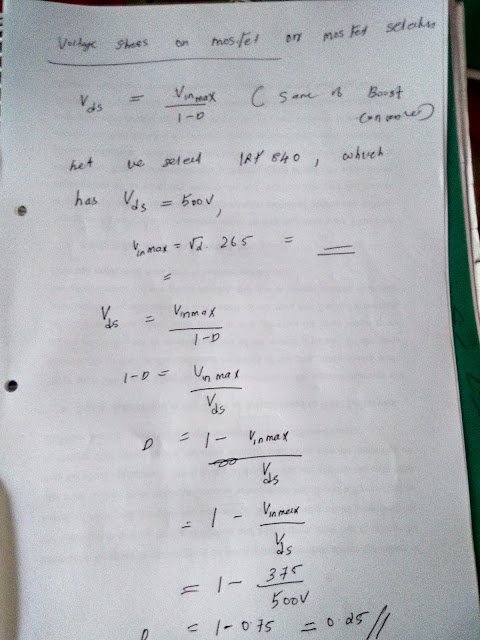 Voltage stress on mosfet or mosfet selection
Vds = Vinmax / 1-D ( Same as Boost
Converter)
Let we select IRF 840, which
has Vds = 500V,
Vinmax = √2. 265 =
=
Vds = Vinmax / 1-D
1-D = Vin max / Vds
D = 1 - Vinmax / Vds
= 1 - Vinmax / Vds
= 1 - 375 / 500V
D = 1-0.75 = 0.25//